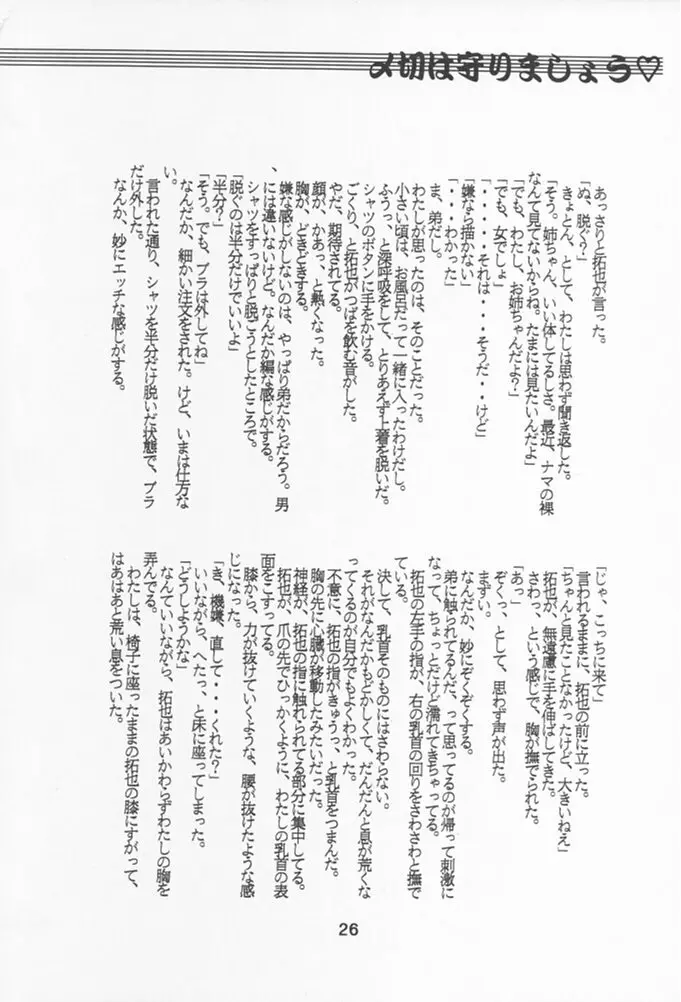 〆切は守りましょう♡
あっさりと拓也が言った。
「ぬ、脱ぐぅ?」
きょとん、として、わたしは思わず聞き返した。
「そう。姉ちゃん、いい体してるしさ。最近、ナマの裸
なんて見てないからね。たまには見たいんだよ」
「でも、わたし、お姉ちゃんだよ?」
「でも、女でしょ」
「・・・・・それは・・・そうだ・・けど」
「嫌なら描かない」
「・・・わかった」
ま、弟だし。
わたしが思ったのは、そのことだった。
小さい頃は、お風呂だって一緒に入ったわけだし。
ふうっ、と深呼吸をして、とりあえず上着を脱いだ。
シャツのボタンに手をかける。
ごくり、と拓也がつばを飲む音がした。
やだ、期待されてる。
顔が、かあっ、と熱くなった。
胸が、どきどきする。
嫌な感じがしないのは、やっぱり弟だからだろう。男
、には違いないけど。なんだか編な感じがする。
シャツをすっぱりと脱ごうとしたところで。
「脱ぐのは半分だけでいいよ」
「半分?」
「そう。でも、ブラは外してね」
なんだか、細かい注文をされた。けど、いまは仕方な
い。
言われた通り、シャツを半分だけ脱いだ状態で、ブラ
だけ外した。
なんか、妙にエッチな感じがする。
「じゃ、こっちに来て」
言われるままに、拓也の前に立った。
「ちゃんと見たことなかったけど、大きいねえ」
拓也が、無遠慮に手を伸ばしてきた。
さわっ、という感じで、胸が撫でられた。
「あっ」
ぞくっ、として、思わず声が出た。
まずい。
なんだか、妙にぞくぞくする。
弟に触られてるんだ、って思ってるのが帰って刺激に
なって、ちょっとだけ濡れてきちゃってる。
拓也の左手の指が、右の乳首の回りをさわさわと撫で
ている。
決して、乳首そのものにはさわらない。
それがなんだかもどかしくて、だんだんと息が荒くな
ってくるのが自分でもよくわかった。
不意に、拓也の指がきゅうっ、と乳首をつまんだ。
胸の先に心臓が移動したみたいだった。
神経が、拓也の指に触れられてる部分に集中してる。
拓也が、爪の先でひっかくように、わたしの乳首の表
面をこすってる。
膝から、力が抜けていくような、腰が抜けたような感
じになった。
「き、機嫌、直して・・・くれた?」
いいながら、へたっ、と床に座ってしまった。
「どうしようかな」
なんていいながら、拓也はあいかわらずわたしの胸を
弄んでる。
わたしは、椅子に座ったままの拓也の膝にすがって、
はあはあと荒い息をついた。
26